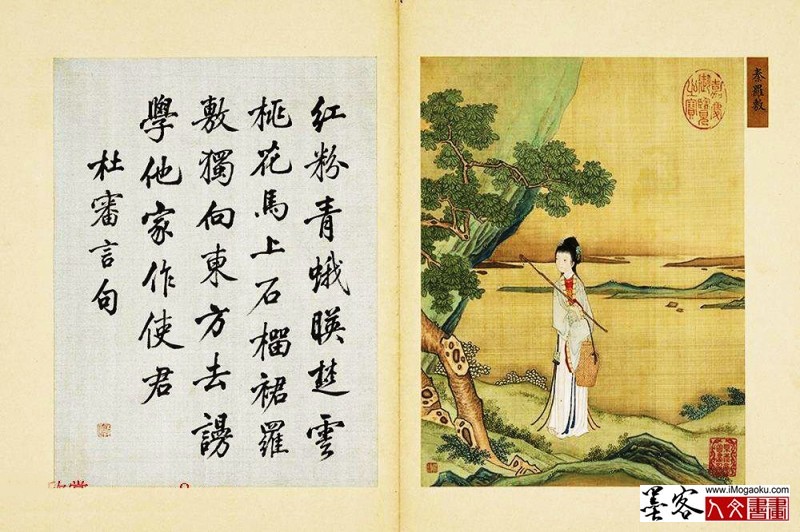 秦羅敷
嘉慶御覽之寶
紅粉青蛾暎楚雲
桃花馬上石榴裙羅
敷獨向東方去謾
學他家作使君
杜審言句
墨客
www.iMogaoku.com
人文書畫